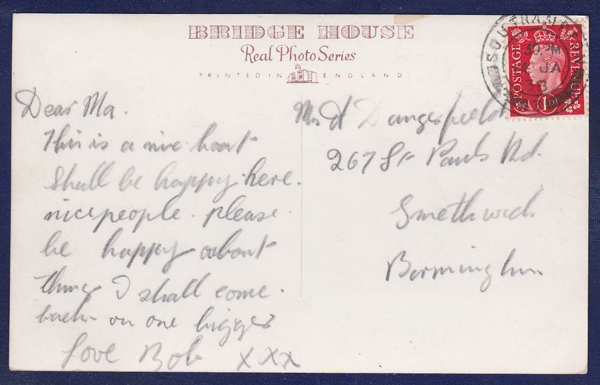 BRIDGE HOUSE
Real Photo Series
PRINTED IN ENGLAND
SOUTHAMPTON
30 PM
2 JA
POSTAGE
REVENUE
1D
Dear Ma.
This is a nice boat
Shall be happy here.
nice people. please.
be happy about
things I shall come.
back on one bigger
Love Bob xxx
Mrs H Dangerfield
267 St Pauls Rd.
Smethwick
Birmingham